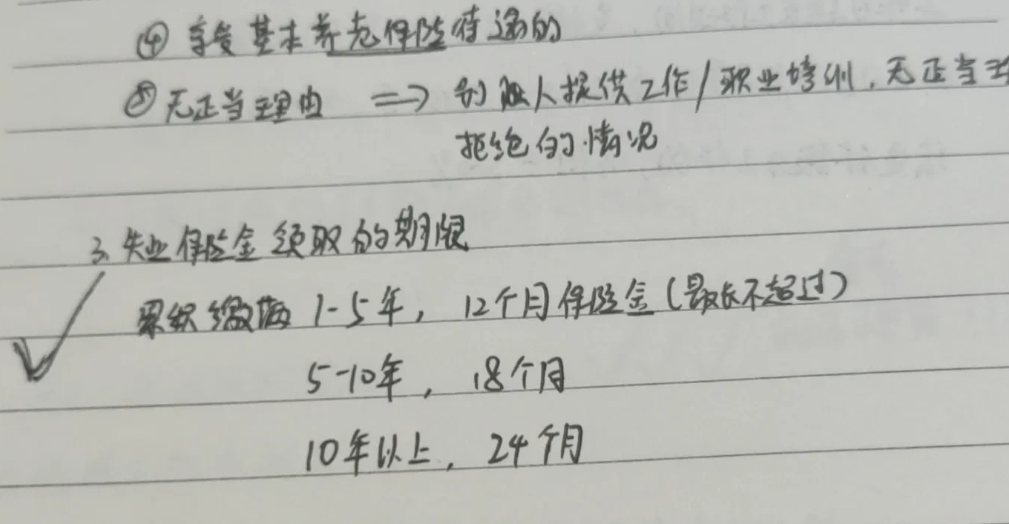 ④ 享受基本养老保险待遇的
⑤ 无正当理由 => 别的人提供工作/职业培训,无正当
拒绝的情况
3、失业保险金领取的期限
累积缴满 1-5年, 12个月保险金(最长不超过)
5-10年, 18个月
10年以上, 24个月